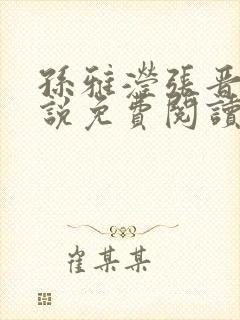 孫雅瀅張晋
說免費閱讀
崔某某